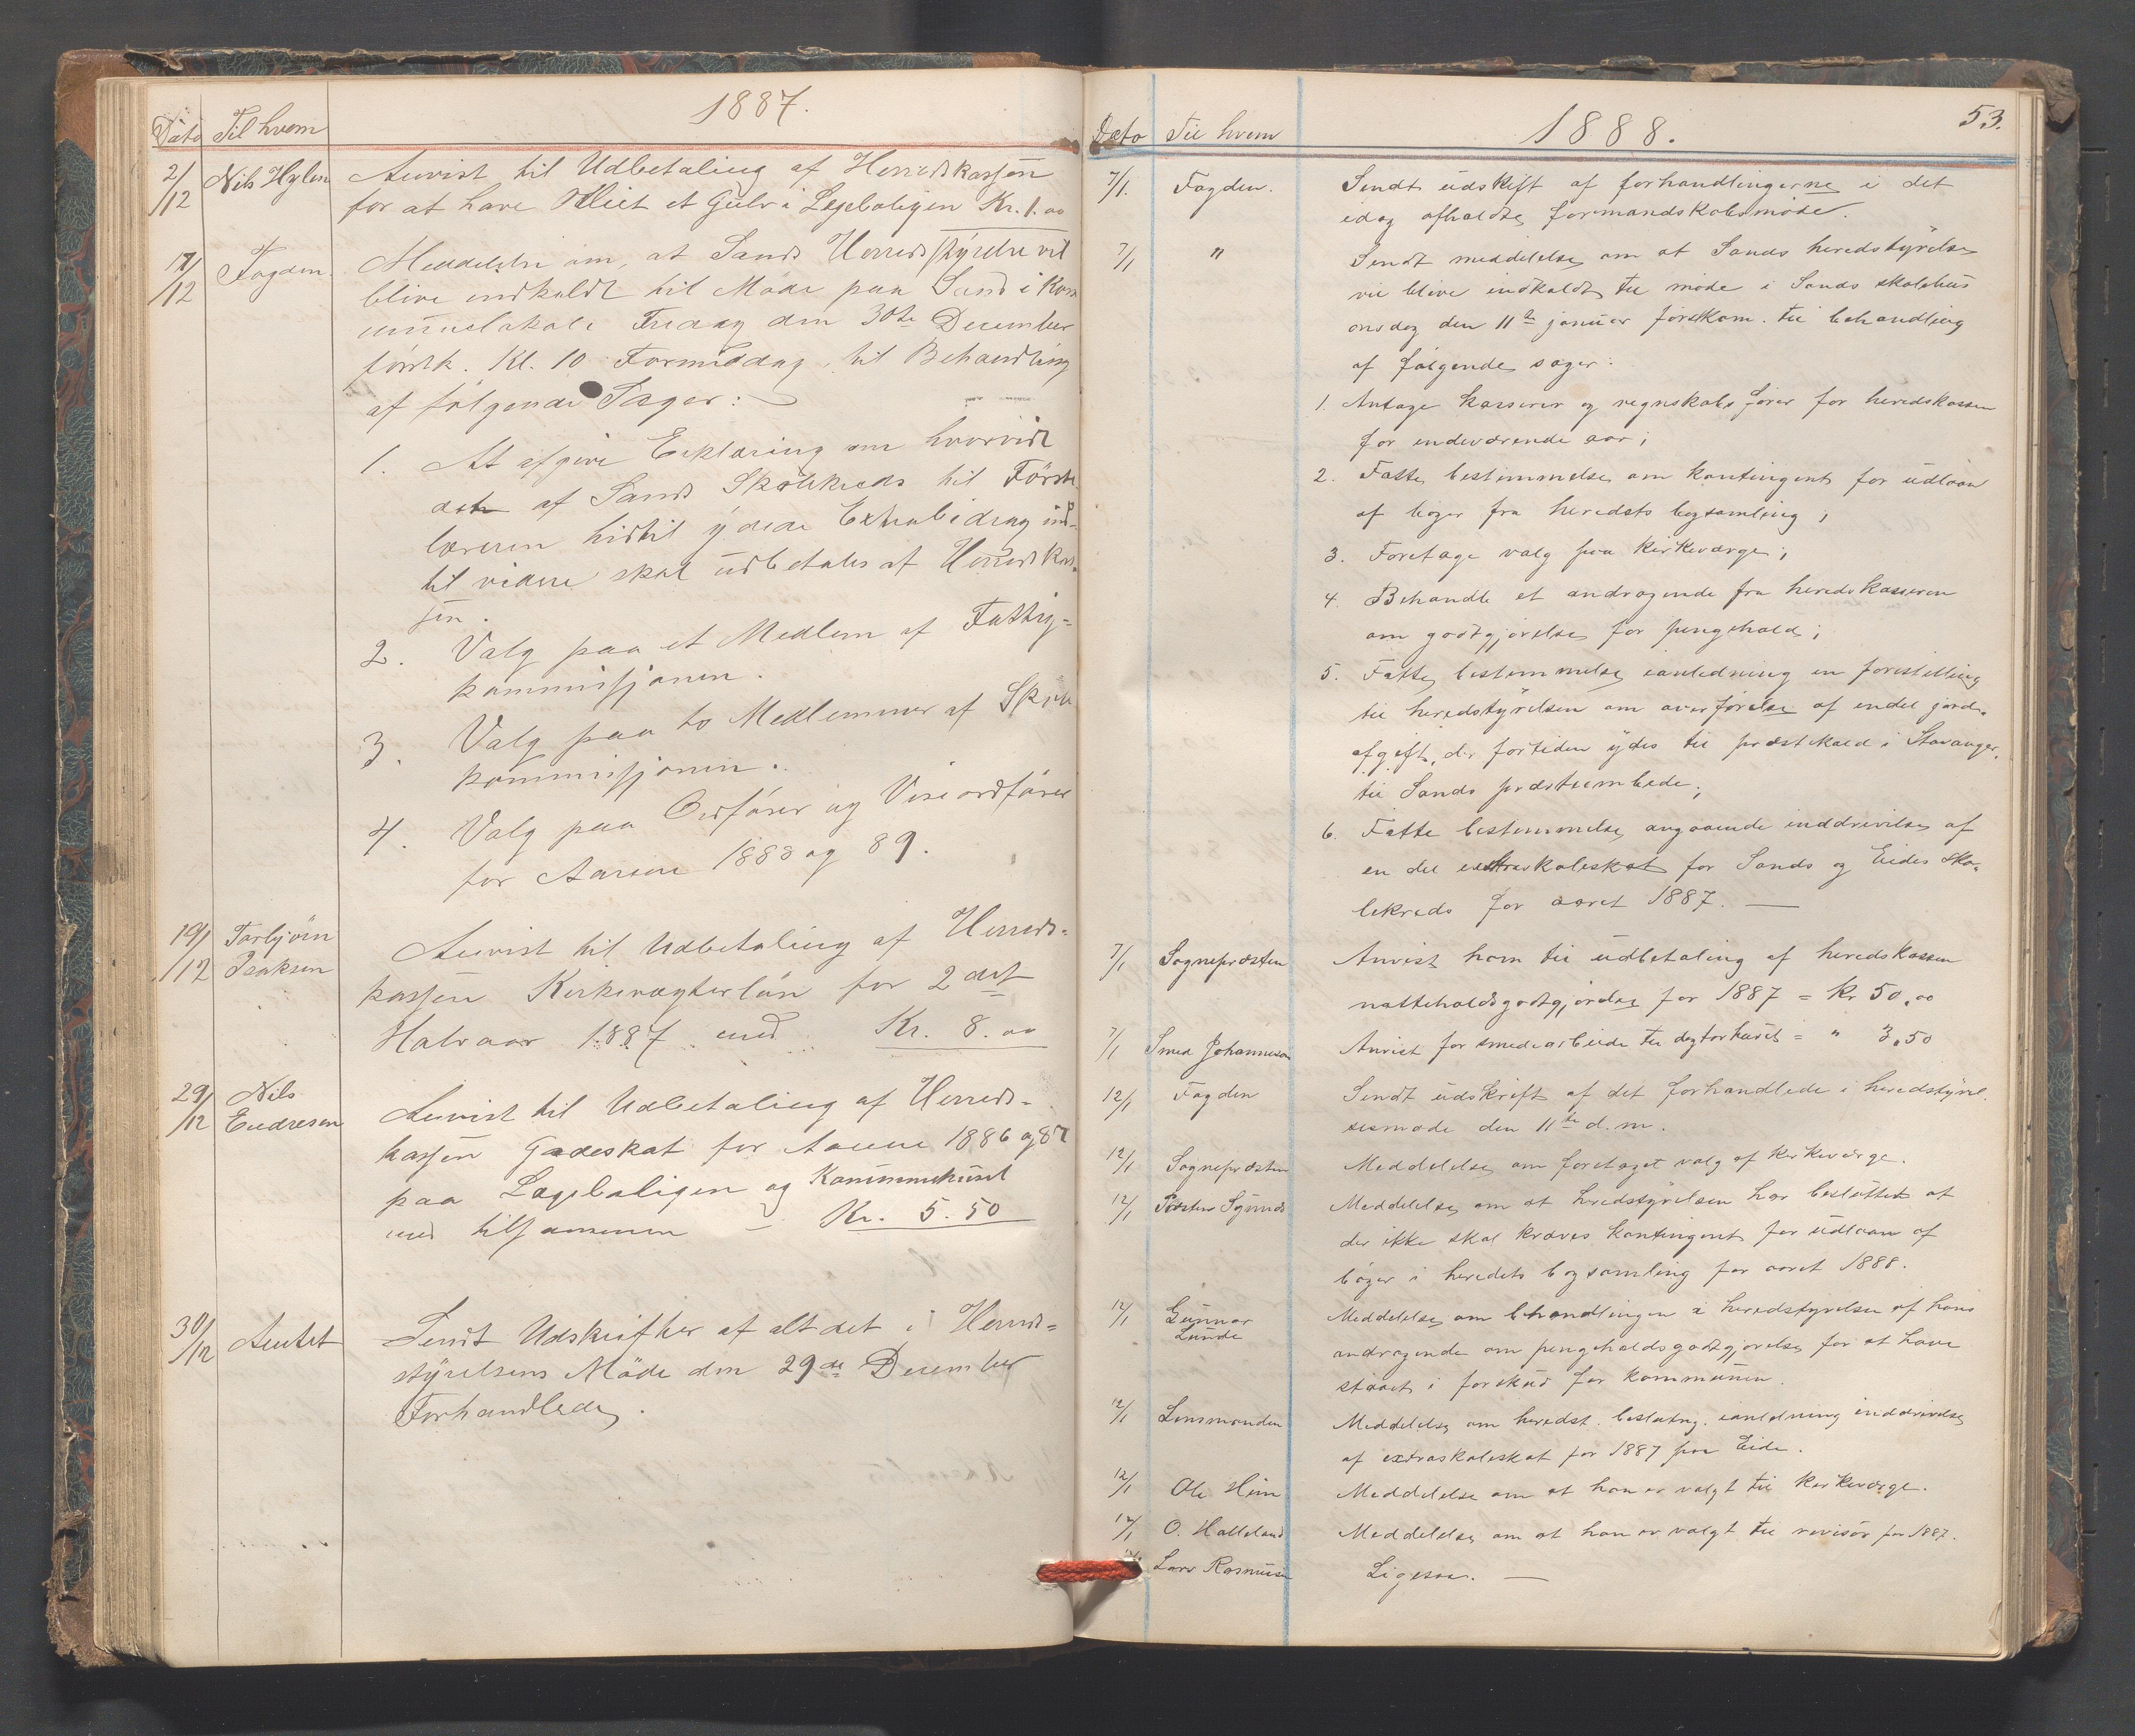 1887.
Dato Til hvem
2/12 Nils Hylen Anvist til Udbetaling af Herredskassen
for at have Olliet et Gulv i Lægeboligen Kr. 1.00
17/12 Fogden. Meddelelse om, at Sands Herredsstyrelse vil
blive indkaldt til Møde paa Sand i Kom
munelokale Fredag den 30te December
førstk. Kl. 10 Formiddag, til Behandling
af følgende Sager:
1. At afgive Erklæring om hvorvidt
det af Sands Skolekreds til Første
læreren hidtil ydede Extrabidrag ind-
til videre skal udbetales af Herredskas-
sen.
2. Valg paa et Medlem af Fattig-
kommissjonen.
3. Valg paa to Medlemmer af Skole
kommissjonen.
4. Valg paa Ordfører og Viseordfører
for Aarene 1888 og 89.
19/12 Torbjörn Anvist til Udbetaling af Herreds-
Isaksen kassen Kirkevægterløn for 2det
Halvaar 1887 med Kr. 8.00
29/12 Nils
Endresen Anvist til Udbetaling af Herreds-
kassen Gadeskat for Aarene 1886 og 87
paa Lægeboligen og Kommunehuset
med tilsammen – Kr. 5.50
30/12 Amtet Sendt Udskrifter af alt det i Herreds-
styrelsens Møde den 29de December
Forhandlede.
53.
1888.
Dato Til hvem
7/1. Fogden. Sendt udskift af forhandlingerne i det
idag afholdte formandskabsmøde.
7/1 " Sendt meddelelse om at Sands heredstyrelse
vil blive indkaldt til møde i Sands skolehus
onsdag den 11te januar førstkom. til behandling
af følgende sager:
1. Antage kasserer og regnskabsfører for heredskassen
for indeværende aar;
2. Fatte bestemmelse om kontingent for udlaan
af bøger fra heredets bogsamling;
3. Foretage valg paa kirkeværge;
4. Behandle et andragende fra heredskassereren
om godtgjørelse for pengehold;
5. Fatte bestemmelse ianledning en forestilling
til heredstyrelsen om overførelse af endel jord-
afgift, der fortiden ydes til præstekald i Stavanger,
til Sands præsteembede;
6. Fatte bestemmelse angaaende inddrivelse af
en del extraskoleskat for Sands og Eides sko-
lekreds for aaret 1887. —
7/1 Sognepræsten Anvist ham til udbetaling af heredskassen
natteholdsgodtgjørelse for 1887 = Kr 50.00
7/1 Smed Johannesen Anvist for smedearbeide til dogtorhuset = " 3.50
12/1 Fogden Sendt udskrift af det forhandlede i heredstyrel-
sesmøde den 11te d.m.
12/1 Sognepræsten Meddelelse om foretaget valg af kirkeværge.
12/1 Meddelelse om at heredstyrelsen har besluttet at
der ikke skal kræves kontingent for udlaan af
bøger i heredets bogsamling for aaret 1888.
12/1 Gunnar Meddelelse om behandlingen i heredstyrelsen af hans
Lunde andragende om pengeholdsgodtgjørelse for at have
staaet i forskud for kommunen.
12/1 Lensmanden Meddelelse om heredst. beslutng. ianledning inddrivelse
af extraskoleskat for 1887 paa Eide.
12/1 Ole Heim Meddelelse om at han er valgt til kirkeværge.
12/1 O. Halleland Meddelelse om at han er valgt til revisor for 1887.
Lars Rasmusen Ligesaa. —